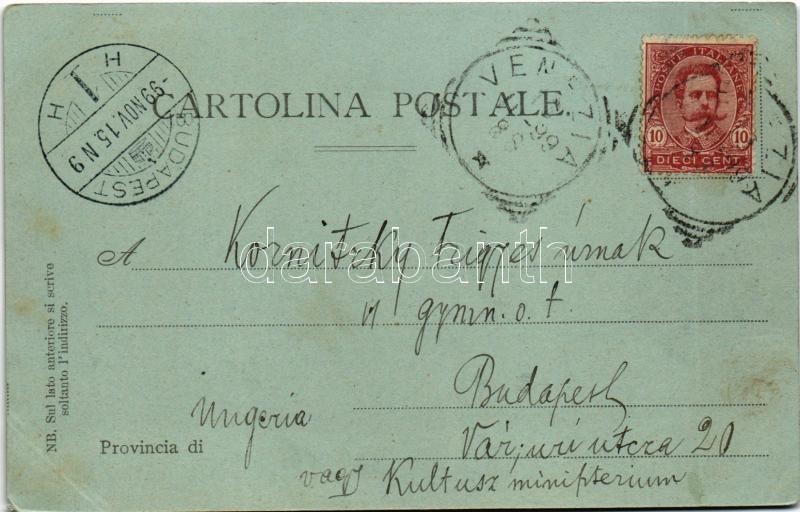 CARTOLINA POSTALE
BUDAPEST
99 NOV. 15. N 9
H I H
VENEZIA
99
POSTE ITALIANE
10 10
DIECI CENT.
VENEZIA
A Kornitzky Frigyes úrnak
gymn. o. t.
Budapest
Ungeria
Provincia di
Vár, uri utcza 20
vagy Kultuszministerium
NB. Sul lato anteriore si scrive
soltanto l'indirizzo.
darabanth